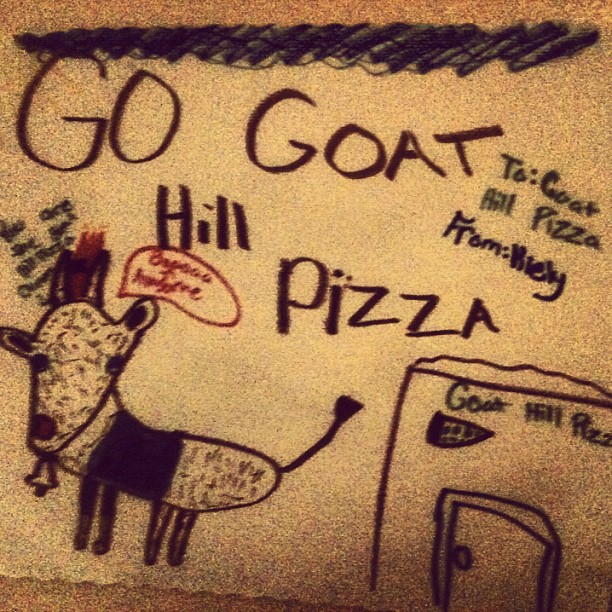 GO GOAT
Hill
PïZZA
To: Goat
Hill Pizza
From:
Goat Hill Pizza